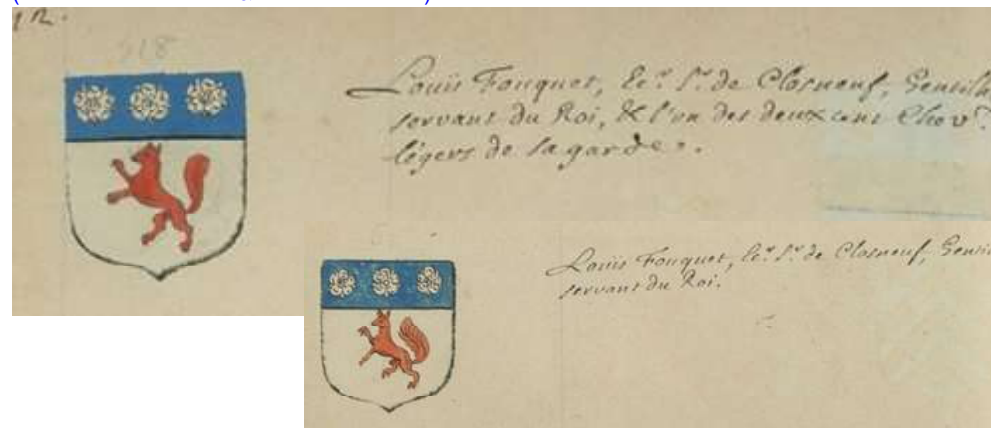 12.
918
Louis Fouquet, Ec.r S.r de Closneuf, Gentilh
servant du Roi, & l'un des deux cent Chev.
légers de sa garde.
6
Louis Fouquet, Ec.r S.r de Closneuf, Genti
servant du Roi.